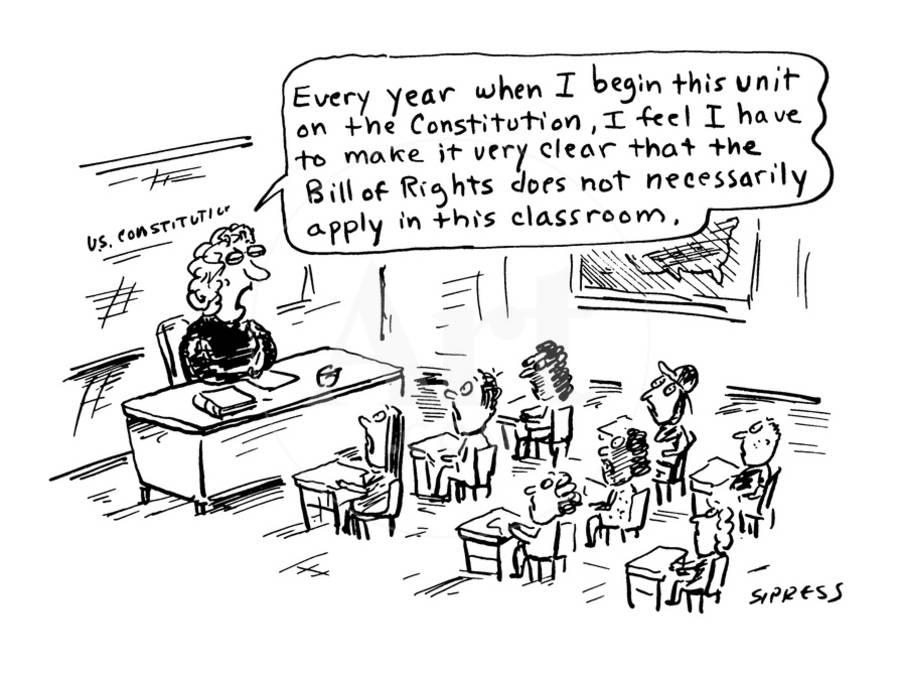 Every year when I begin this unit
on the Constitution, I feel I have
to make it very clear that the
Bill of Rights does not necessarily
apply in this classroom.
U.S. CONSTITUTION
SIPRESS
Art